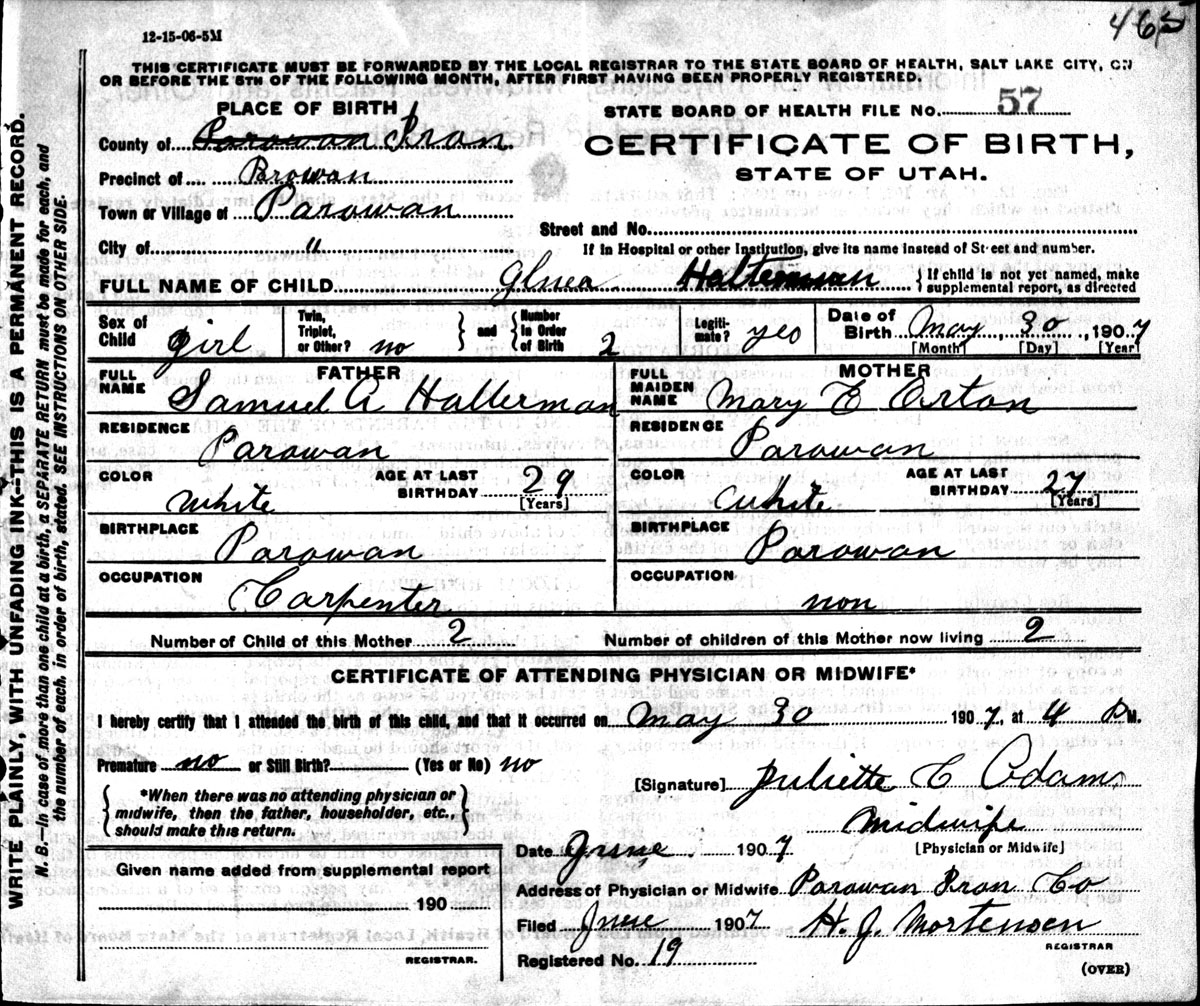 465
12-15-06-5M
THIS CERTIFICATE MUST BE FORWARDED BY THE LOCAL REGISTRAR TO THE STATE BOARD OF HEALTH, SALT LAKE CITY, ON
OR BEFORE THE 5TH OF THE FOLLOWING MONTH, AFTER FIRST HAVING BEEN PROPERLY REGISTERED.
WRITE PLAINLY, WITH UNFADING INK—THIS IS A PERMANENT RECORD.
N. B.—In case of more than one child at a birth, a SEPARATE RETURN must be made for each, and
the number of each. in order of birth, stated. SEE INSTRUCTIONS ON OTHER SIDE.
PLACE OF BIRTH
County of Parowan Iron
Precinct of .... Browan
Town or Village of Parowan
City of "
STATE BOARD OF HEALTH FILE No. 57
CERTIFICATE OF BIRTH,
STATE OF UTAH.
Street and No.
If in Hospital or other Institution, give its name instead of Street and number.
FULL NAME OF CHILD Halterman { If child is not yet named, make
supplemental report, as directed
Sex of Child girl
Twin, Triplet, or Other? no } and { Number in Order of Birth 2
Legiti-mate? yes
Date of Birth May 30, 1907
[Month] [Day] [Year]
FATHER
FULL NAME Samuel A Halterman
RESIDENCE
Parowan
COLOR White AGE AT LAST BIRTHDAY 29 [Years]
BIRTHPLACE
Parowan
OCCUPATION
Carpenter
MOTHER
FULL MAIDEN NAME Mary E Orton
RESIDENCE
Parowan
COLOR White AGE AT LAST BIRTHDAY 27 [Years]
BIRTHPLACE
Parowan
OCCUPATION
non
Number of Child of this Mother 2 Number of children of this Mother now living 2
CERTIFICATE OF ATTENDING PHYSICIAN OR MIDWIFE*
I hereby certify that I attended the birth of this child, and that it occurred on May 30 1907, at 4 P M.
Premature no or Still Birth? (Yes or No) no
{ *When there was no attending physician or
midwife, then the father, householder, etc.,
should make this return. }
[Signature] Juliette C Adams
Midwife
[Physician or Midwife]
Date June 1907
Address of Physician or Midwife Parowan Iron Co
Filed June 1907 H. J. Mortensen
REGISTRAR
Registered No. 19
(OVER)
Given name added from supplemental report
190
REGISTRAR.